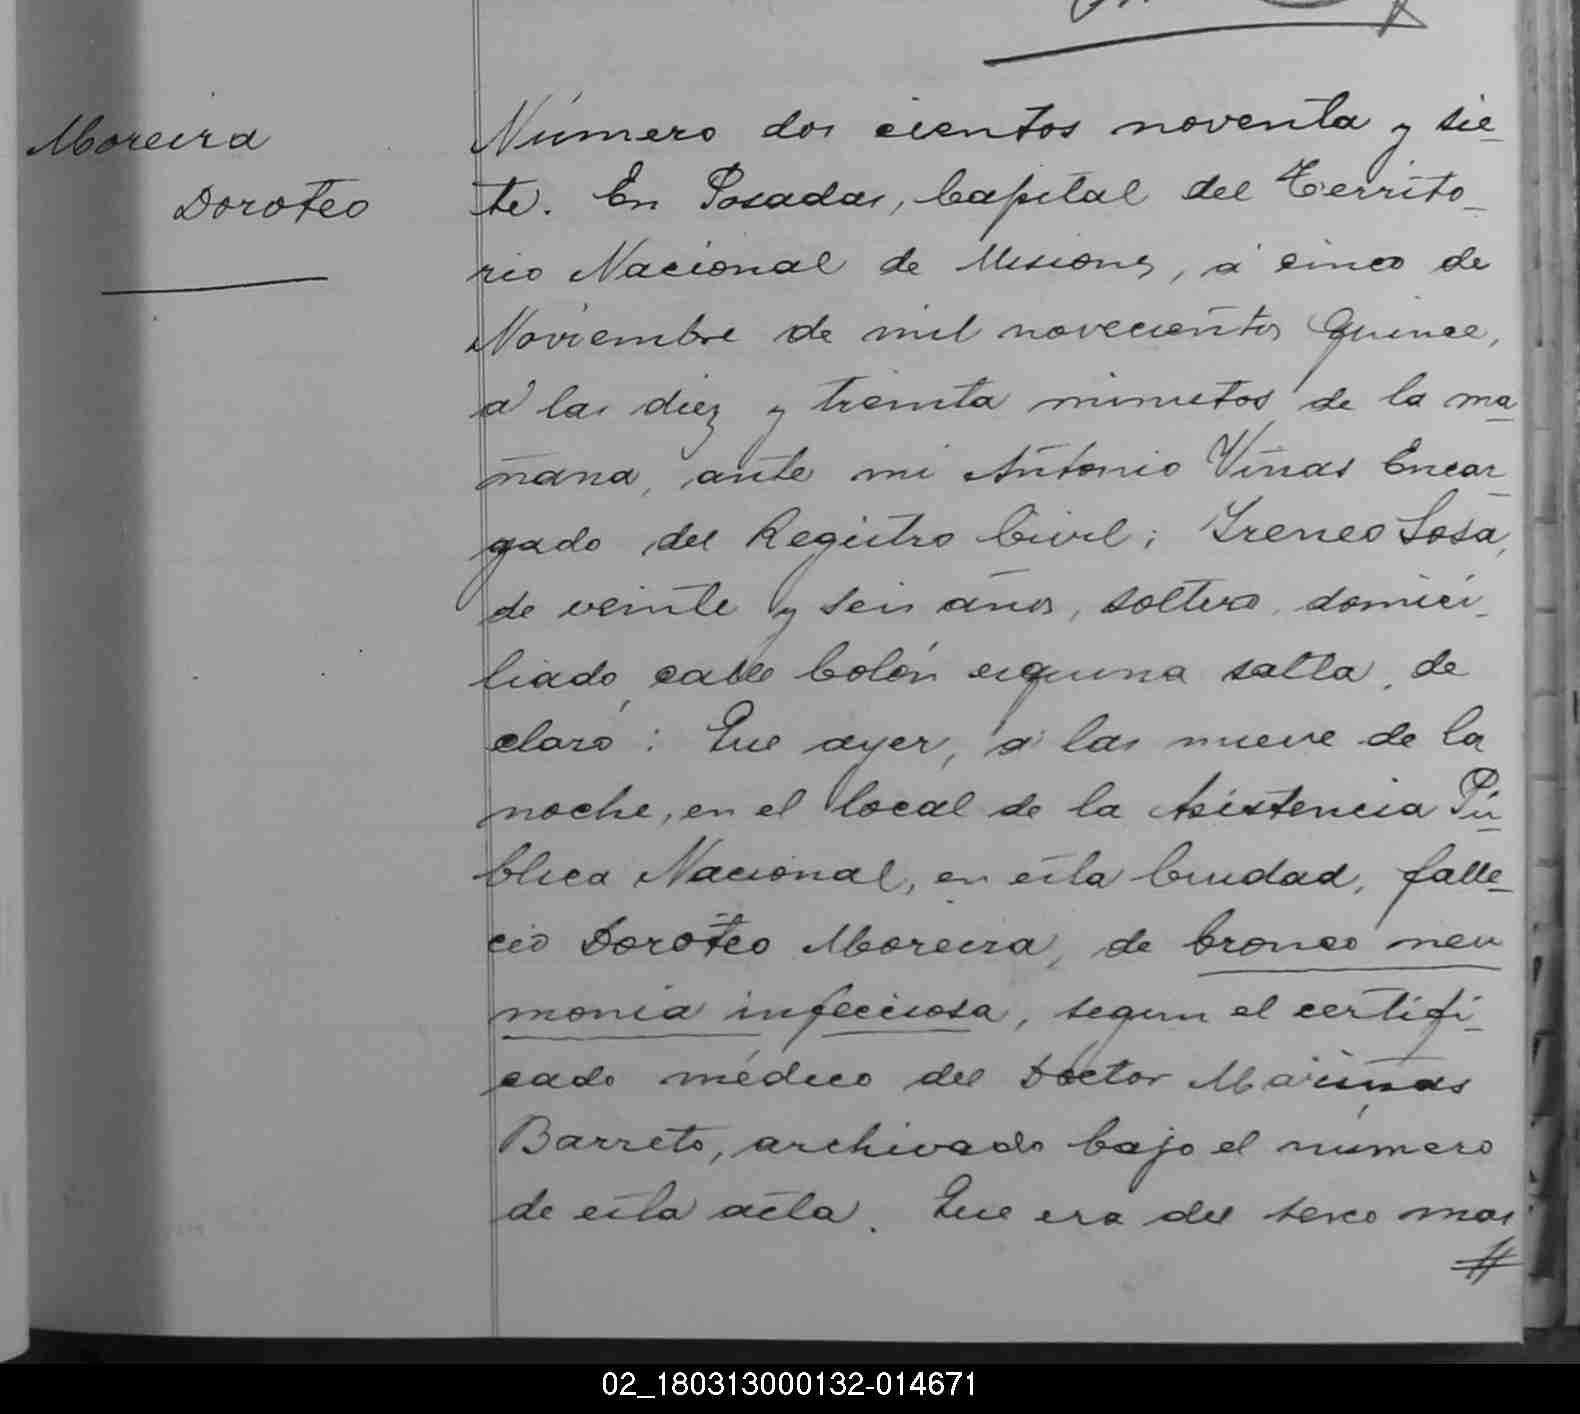 Moreira
Doroteo
Número dos cientos noventa y sie-
te. En Posadas, Capital del Territo-
rio Nacional de Misiones, á cinco de
Noviembre de mil novecientos quince,
á las diez y treinta minutos de la ma-
ñana, ante mi Antonio Viñas Encar-
gado del Registro Civil; Ireneo Sosa,
de veinte y seis años, soltero, domici-
liado, calle Colón esquina salta, de
claró: Que ayer, á las nueve de la
noche, en el local de la Asistencia Pú-
blica Nacional, en esta Ciudad, falle-
ció Doroteo Moreira, de bronco neu
monia infecciosa, segun el certifi-
cado médico del Doctor Mariñas
Barreto, archivado bajo el número
de esta acta. Que era del sexo mas
#
02_180313000132-014671